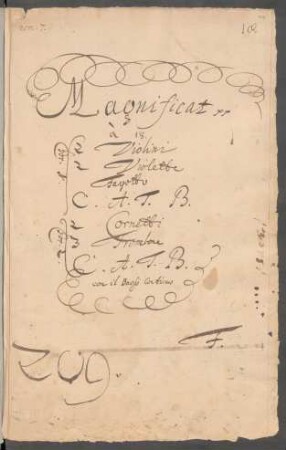 108
Magnificat
à 18.
2 Violini
2 Violette
Fagotto
C. A. T. B.
2 Cornetti
3 Trombone
C. A. T. B.
con il Basso Continuo
F.